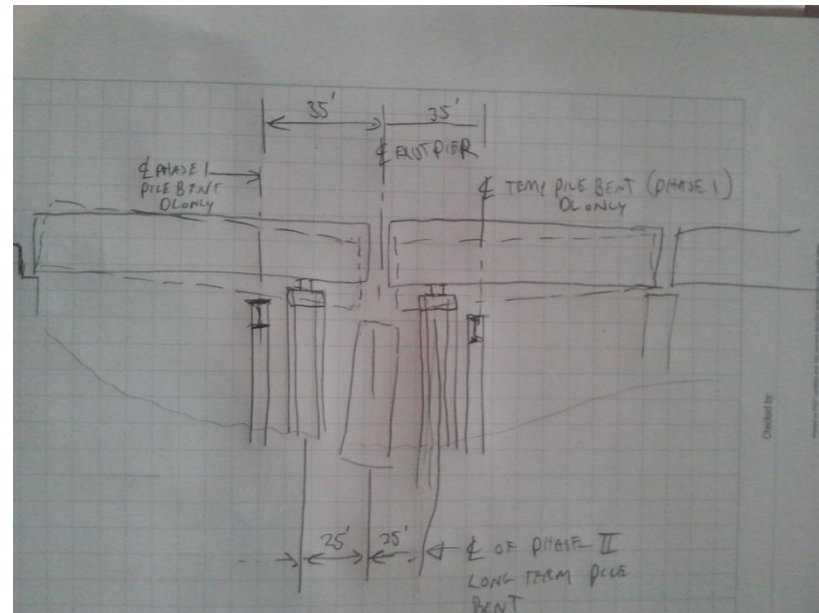 35' 35'
℄ EXIST PIER
℄ PHASE 1
PILE BENT
DL ONLY
℄ TEMP PILE BENT (PHASE 1)
DL ONLY
Checked by
25' 25'
℄ OF PHASE II
LONG TERM PILE
BENT